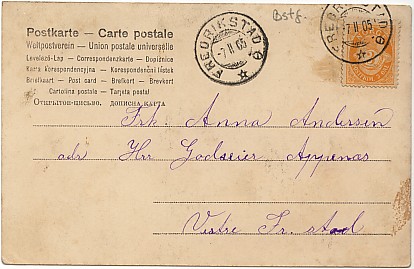 Bstf.
Postkarte — Carte postale
Weltpostverein — Union postale universelle
Levelező-Lap — Correspondenzkarte — Dopisnice
Karta Korespondencyjna — Korespondenční lístek
Brefkaart — Post card — Brefkort — Brevkort
Cartolina postale — Tarjeta postal
Открытое письмо, дописна карта
FREDRIKSTAD
-7 II 05
FREDRIKSTAD
-7 II 05
Frk. Anna Andersen
adr Hrr Godseier Appenæs
Vestre Fr. stad